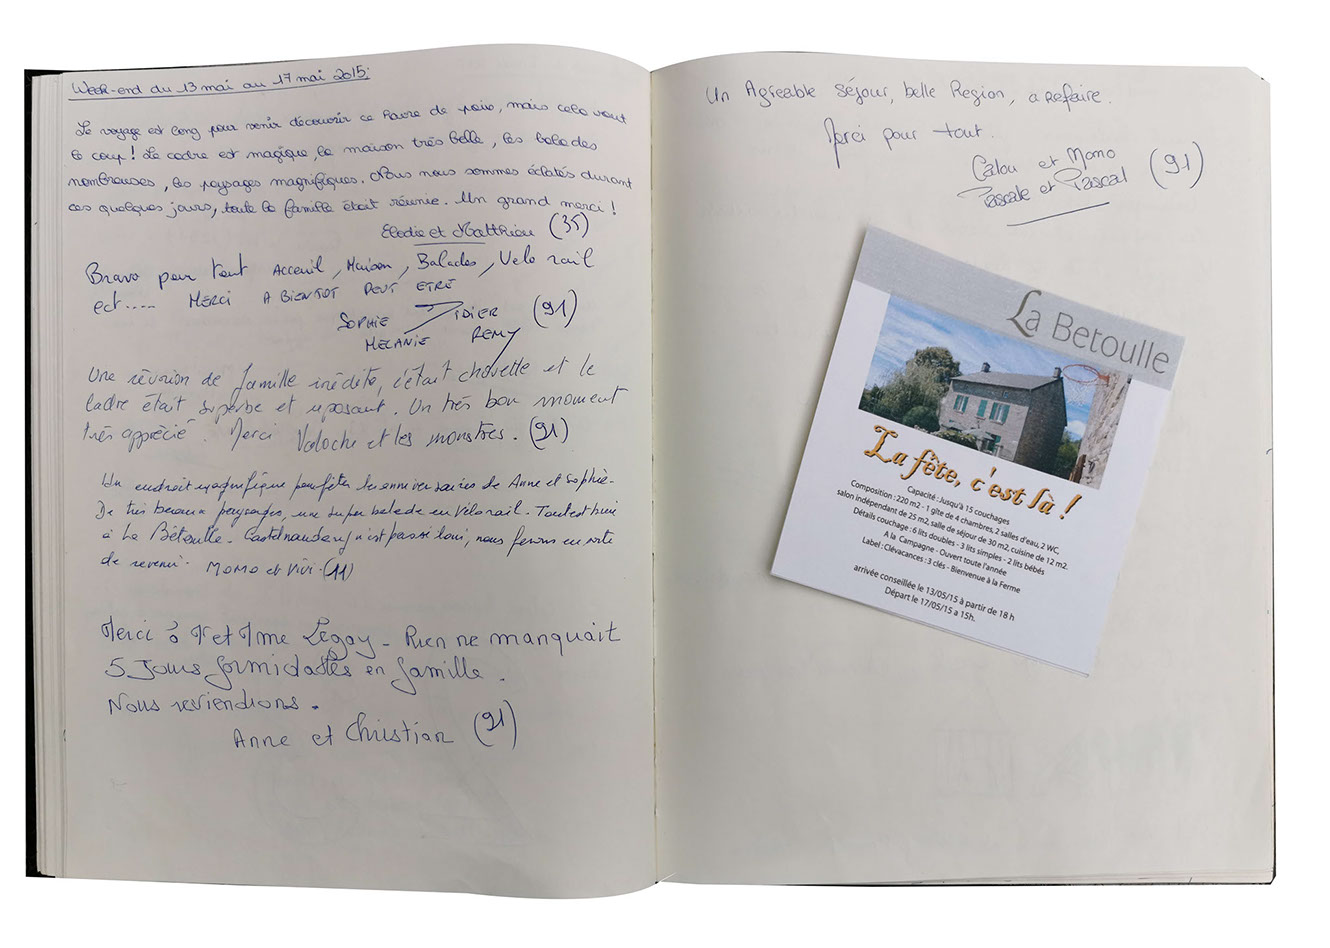 Week-end du 13 mai au 17 mai 2015:
Le voyage est long pour venir découvrir ce havre de paix, mais cela vaut
le coup! Le cadre est magique, la maison très belle, les balades
nombreuses, les paysages magnifiques. Nous nous sommes éclatés durant
ces quelques jours, toute la famille était réunie. Un grand merci!
Elodie et Matthieu (35)
Bravo pour tout Acceuil, Maison, Balades, Velo rail
ect..... MERCI A BIENTOT PEUT ETRE
SOPHIE DIDIER (91)
MÉLANIE REMY
Une réunion de famille inédite, c'était chouette et le
cadre était superbe et reposant. Un très bon moment
très apprécié. Merci Valoche et les monstres. (91)
Un endroit magnifique pour fêter les anniversaires de Anne et Sophie.
De très beaux paysages, une super balade en Vélorail. Tout est bien
à La Bétoulle. Castelnaudary n'est pas si loin, nous ferons en sorte
de revenir. MOMO et Vivi. (11)
Merci à Mr et Mme Legay - Rien ne manquait
5 Jours formidables en famille.
Nous reviendrons.
Anne et Christian (91)
Un Agreable Séjour, belle Region, a Refaire.
Merci pour tout.
Calou et Momo (91)
Pascale et Pascal
La Betoulle
La fête, c'est là !
Capacité : Jusqu'à 15 couchages
Composition : 220 m2 - 1 gîte de 4 chambres, 2 salles d'eau, 2 WC,
salon indépendant de 25 m2, salle de séjour de 30 m2, cuisine de 12 m2.
Détails couchage : 6 lits doubles - 3 lits simples - 2 lits bébés
A la Campagne - Ouvert toute l'année
Label : Clévacances : 3 clés - Bienvenue à la Ferme
arrivée conseillée le 13/05/15 à partir de 18 h
Départ le 17/05/15 a 15h.